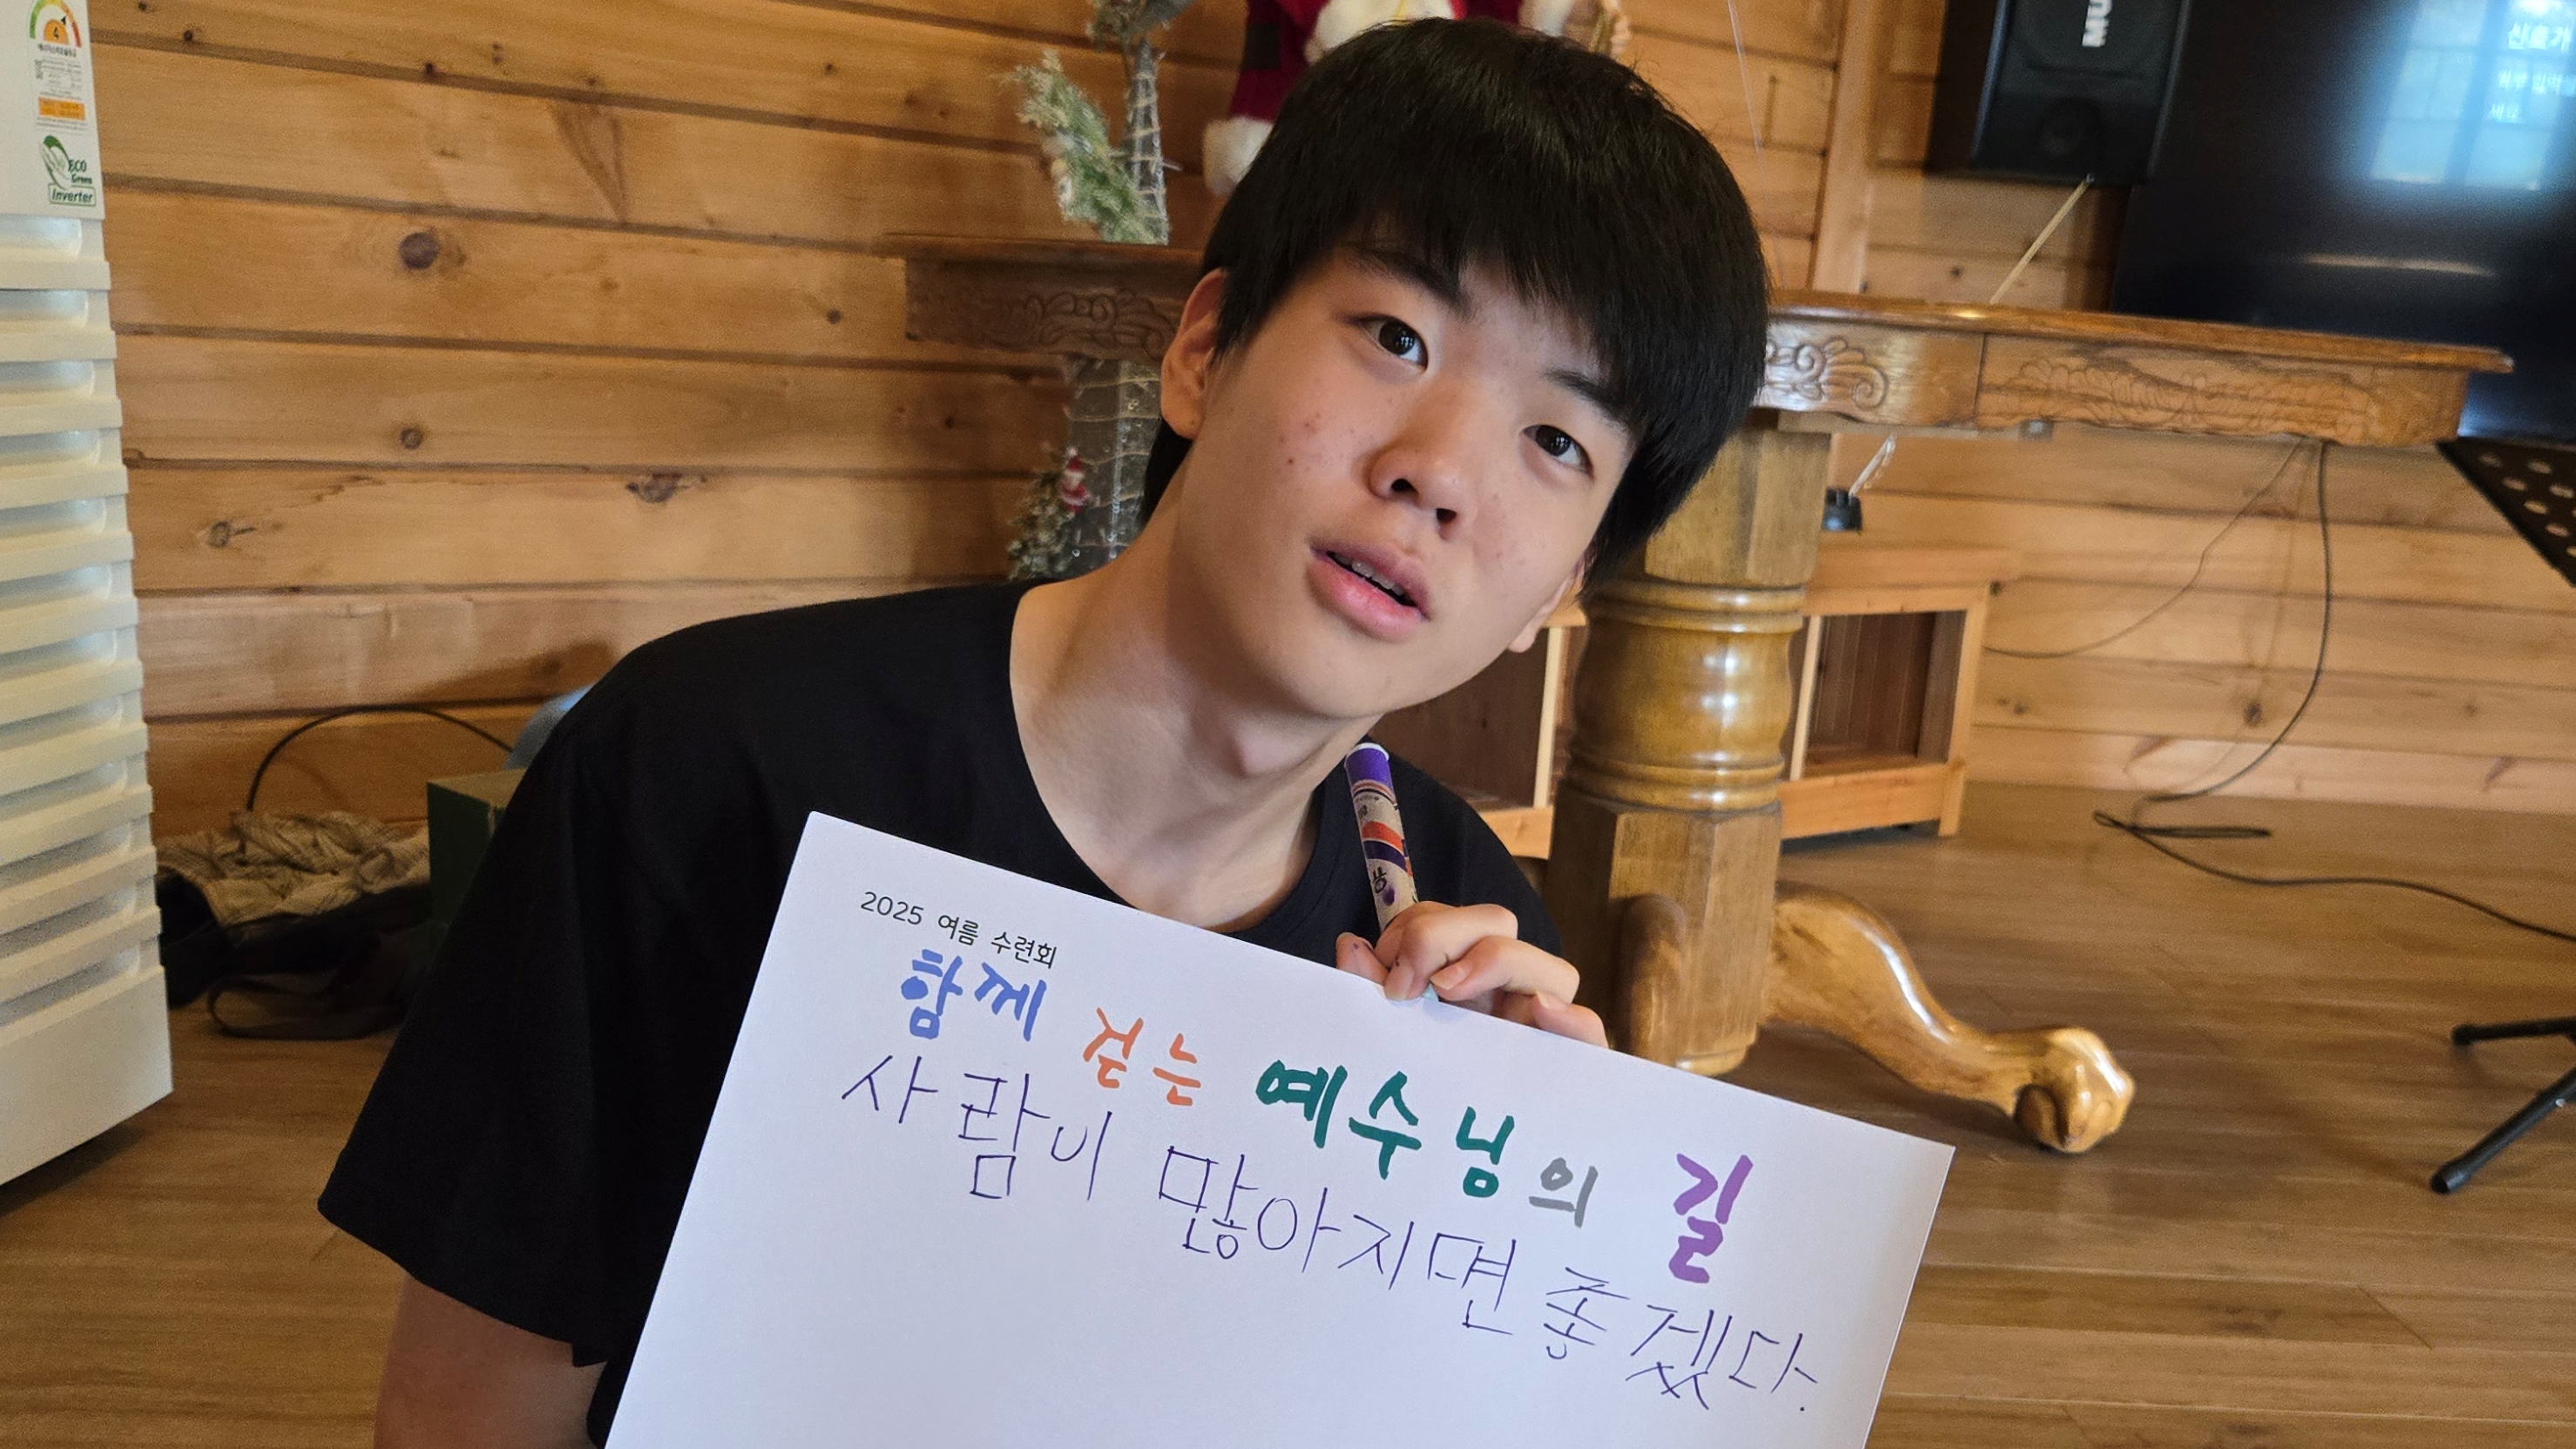 4
ECO
Green
Inverter
MU
2025 여름 수련회
함께 걷는 예수님의 길
사람이 많아지면 좋겠다.